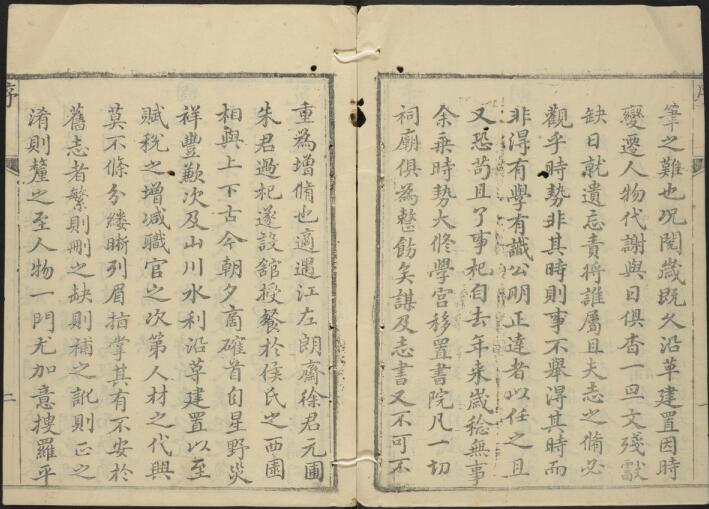 筆之難也况閱歲既久沿革建置因時
變遷人物代謝與日俱杳一旦文殘獻
缺日就遺忘責將誰屬且夫志之脩必
觀乎時勢非其時則事不舉得其時而
非得有學有識公明正達者以任之且
又恐苟且了事杞自去年来歲稔無事
余乗時勢大修學宫移置書院凡一切
祠廟俱為整飭矣謀及志書又不可不
重為增脩也適遇江左朗齋徐君元圃
朱君過杞遂設舘授餐於侯氏之西園
相與上下古今朝夕商確首自星野災
祥豐歉次及山川水利沿革建置以至
賦稅之增減職官之次第人材之代興
莫不條分縷晰列眉指掌其有不安於
舊志者繁則刪之缺則補之訛則正之
淆則釐之至人物一門尤加意搜羅平
序
二